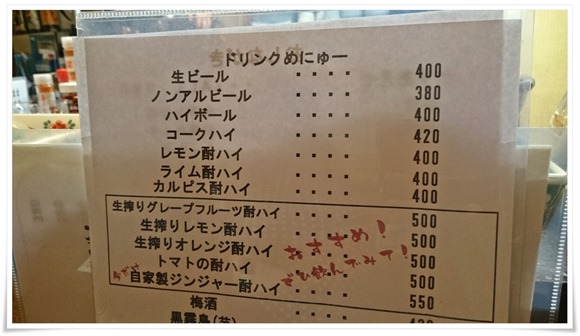 ドリンクめにゅー
生ビール ・・・・ 400
ノンアルビール ・・・・ 380
ハイボール ・・・・ 400
コークハイ ・・・・ 420
レモン酎ハイ ・・・・ 400
ライム酎ハイ ・・・・ 400
カルピス酎ハイ ・・・・ 400
生搾りグレープフルーツ酎ハイ ・・・・ 500
生搾りレモン酎ハイ ・・・・ 500
生搾りオレンジ酎ハイ ・・・・ 500
おすすめ!
トマトの酎ハイ ・・・・ 500
ぜひ飲んでみて!
自家製ジンジャー酎ハイ ・・・・ 500
梅酒 ・・・・ 550
黒霧島(芋) ・・・・